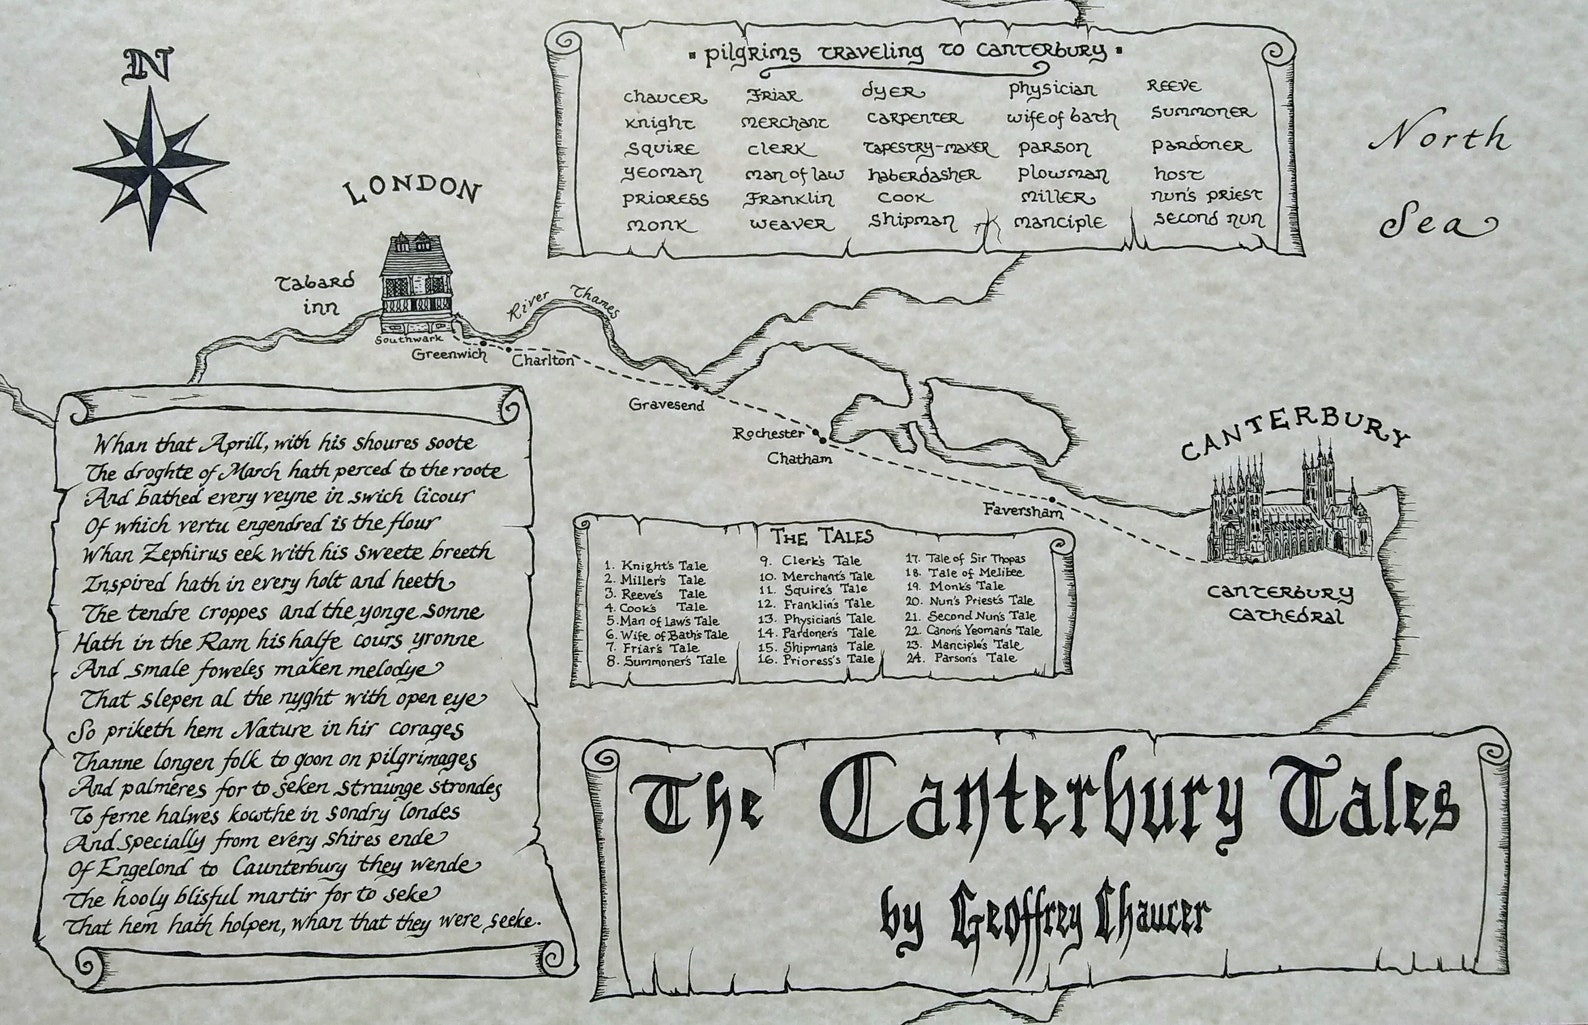 N
• pilgrims traveling to canterbury •
chaucer
knight
squire
yeoman
prioress
monk
friar
merchant
clerk
man of law
franklin
weaver
dyer
carpenter
tapestry-maker
haberdasher
cook
shipman
physician
wife of bath
parson
plowman
miller
manciple
reeve
summoner
pardoner
host
nun's priest
second nun
North
Sea
LONDON
Tabard
inn
River Thames
Southwark
Greenwich
Charlton
Gravesend
Rochester
Chatham
Faversham
CANTERBURY
canterbury
cathedral
Whan that Aprill, with his shoures soote
The droghte of March hath perced to the roote
And bathed every veyne in swich licour
Of which vertu engendred is the flour
Whan Zephirus eek with his sweete breeth
Inspired hath in every holt and heeth
The tendre croppes and the yonge sonne
Hath in the Ram his halfe cours yronne
And smale foweles maken melodye
That slepen al the nyght with open eye
So priketh hem Nature in hir corages
Thanne longen folk to goon on pilgrimages
And palmeres for to seken straunge strondes
To ferne halwes kowthe in sondry londes
And specially from every shires ende
Of Engelond to Caunterbury they wende
The hooly blisful martir for to seke
That hem hath holpen, whan that they were seeke.
The Tales
1. Knight's Tale
2. Miller's Tale
3. Reeve's Tale
4. Cook's Tale
5. Man of Law's Tale
6. Wife of Bath's Tale
7. Friar's Tale
8. Summoner's Tale
9. Clerk's Tale
10. Merchant's Tale
11. Squire's Tale
12. Franklin's Tale
13. Physician's Tale
14. Pardoner's Tale
15. Shipman's Tale
16. Prioress's Tale
17. Tale of Sir Thopas
18. Tale of Melibee
19. Monk's Tale
20. Nun's Priest's Tale
21. Second Nun's Tale
22. Canon's Yeoman's Tale
23. Manciple's Tale
24. Parson's Tale
The Canterbury Tales
by Geoffrey Chaucer